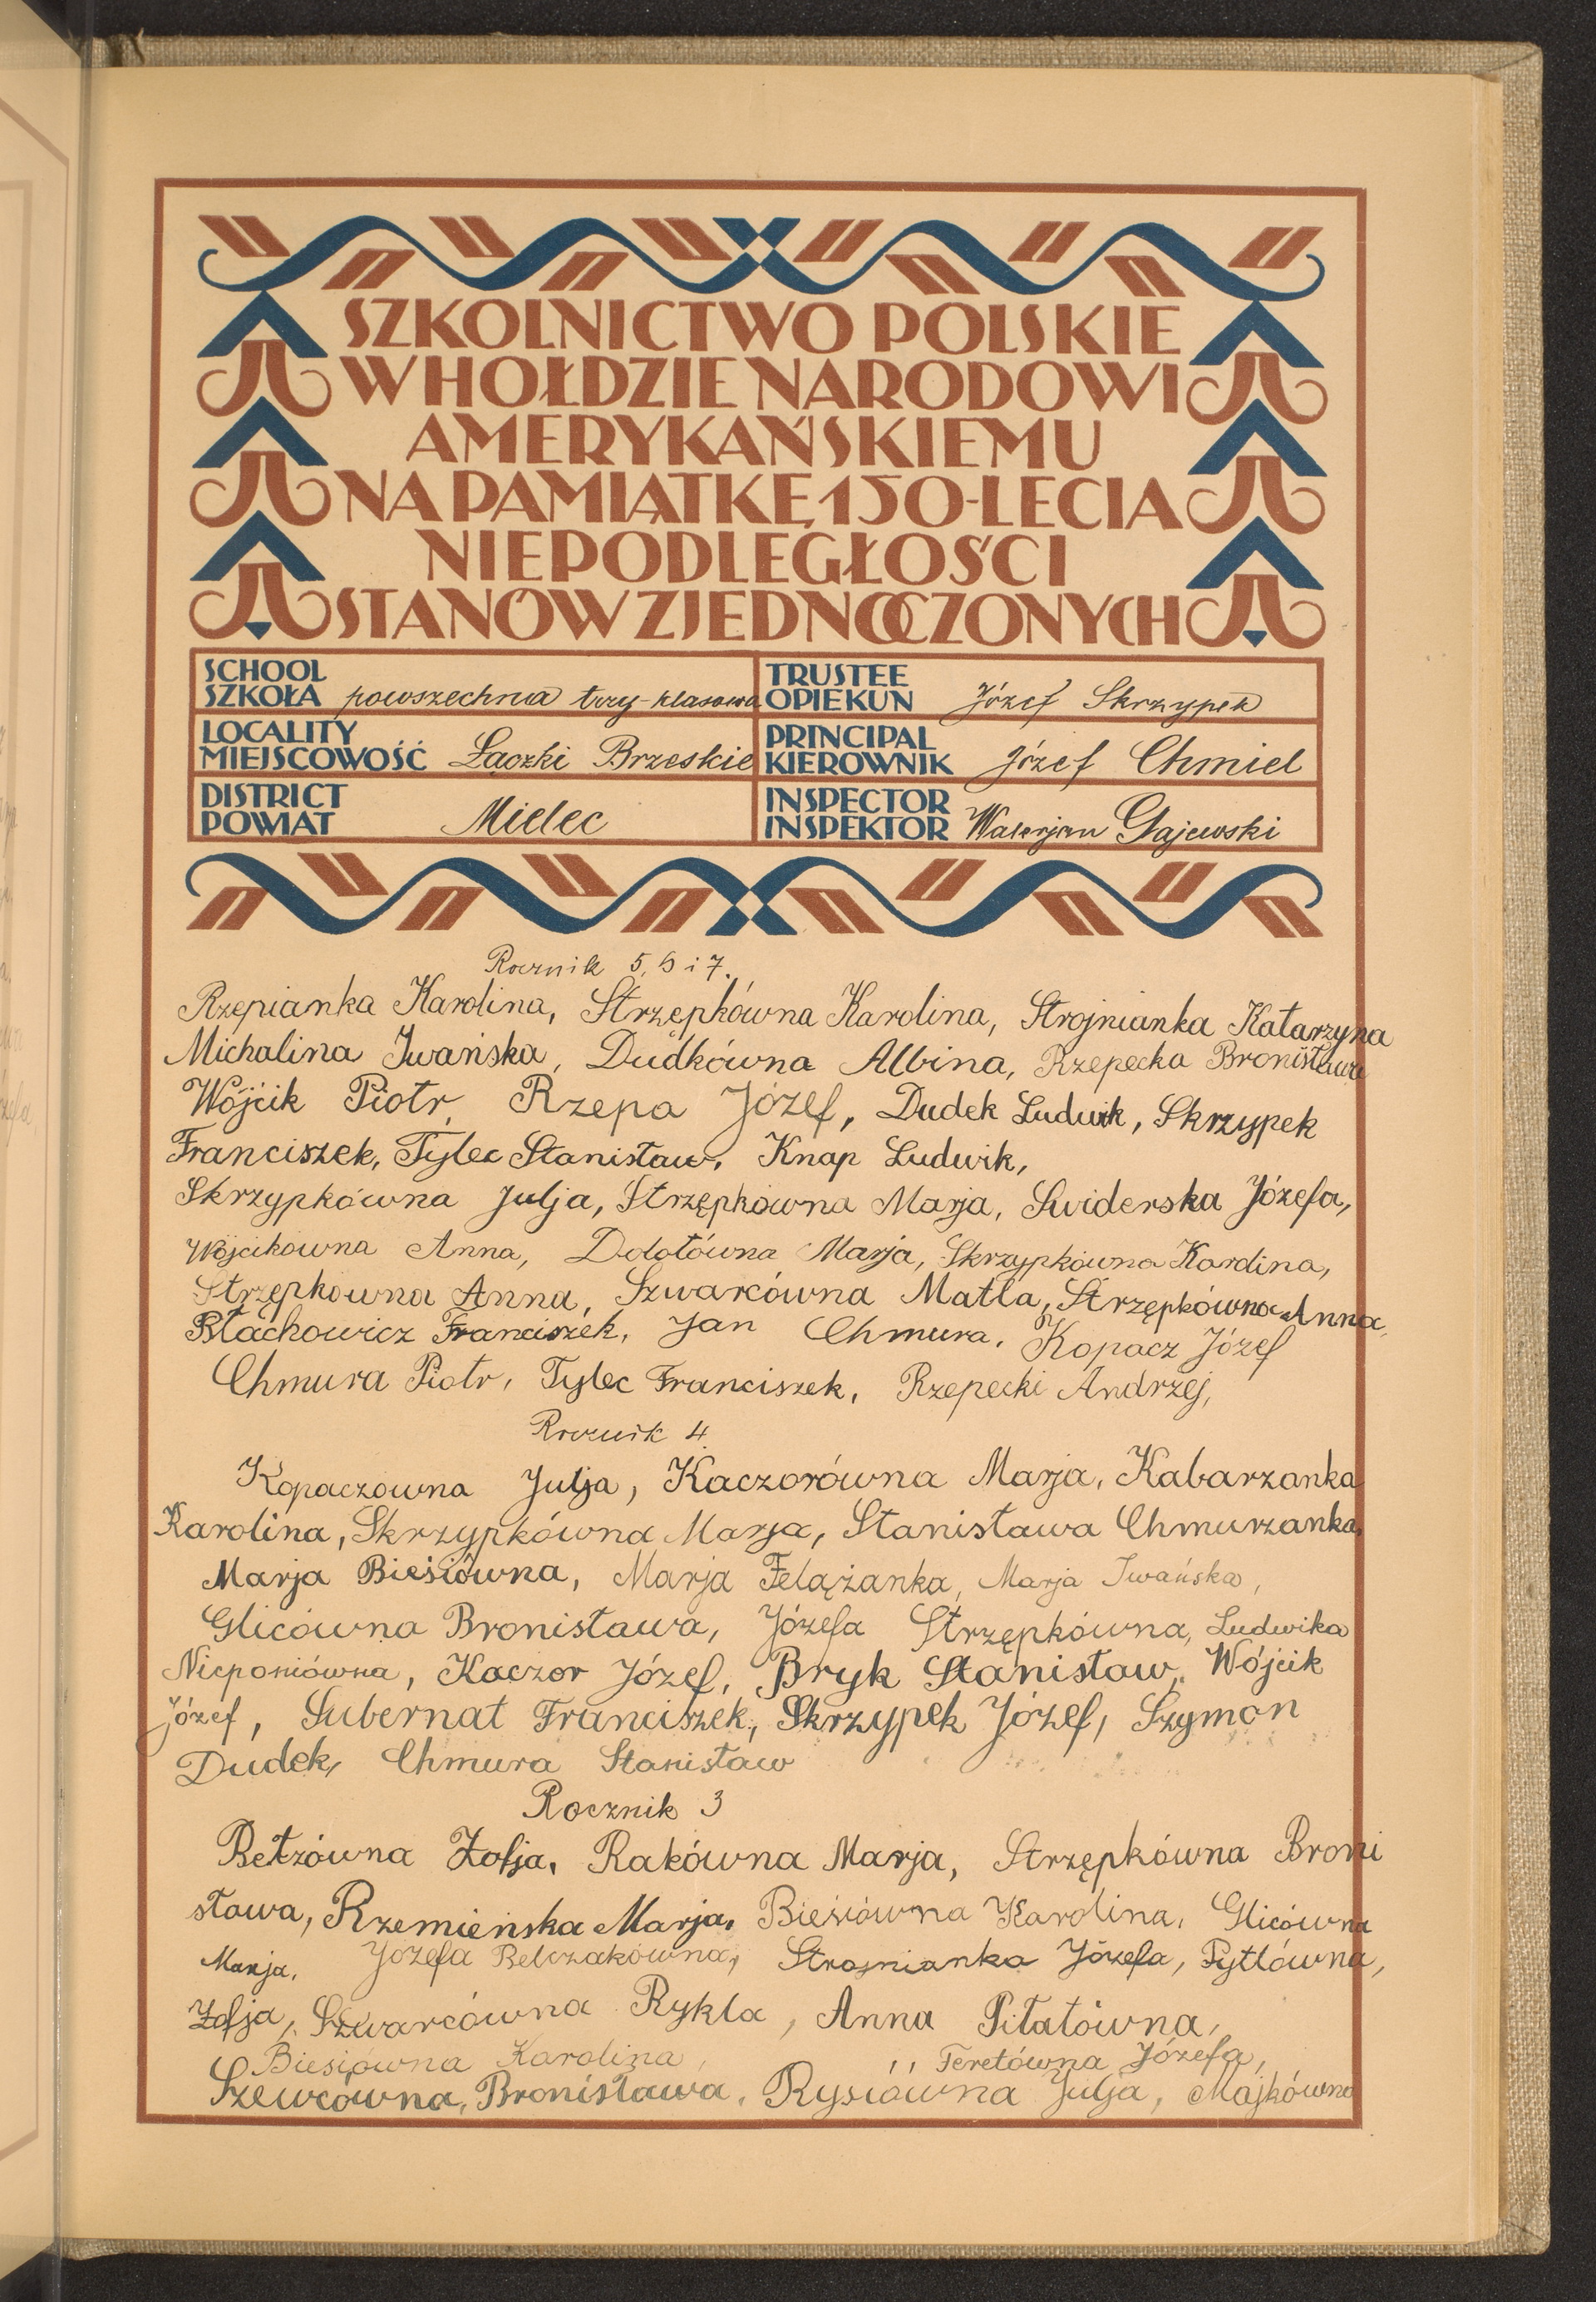 SZKOLNICTWO POLSKIE
W HOŁDZIE NARODOWI
AMERYKAŃSKIEMU
NA PAMIĄTKĘ 150-LECIA
NIEPODLEGŁOŚCI
STANÓW ZJEDNOCZONYCH
SCHOOL
SZKOŁA powszechna trzy-klasowa
TRUSTEE
OPIEKUN Józef Skrzypek
LOCALITY
MIEJSCOWOŚĆ Łączki Brzeskie
PRINCIPAL
KIEROWNIK Józef Chmiel
DISTRICT
POWIAT Mielec
INSPECTOR
INSPEKTOR Walerjan Gajewski
Rocznik 5, 6 i 7.
Rzepianka Karolina, Strzępkówna Karolina, Strojnianka Katarzyna
Michalina Iwańska, Dudkówna Albina, Rzepecka Bronisława
Wójcik Piotr, Rzepa Józef, Dudek Ludwik, Skrzypek
Franciszek, Tylec Stanisław, Knap Ludwik,
Skrzypkówna Julja, Strzępkówna Marja, Swiderska Józefa,
Wójcikowna Anna, Dolotówna Marja, Skrzypkówna Karolina,
Strzępkowna Anna, Szwarcówna Matla, Strzępkówna Anna,
Błachowicz Franciszek, Jan Chmura, Kopacz Józef
Chmura Piotr, Tylec Franciszek, Rzepecki Andrzej,
Rocznik 4.
Kopaczowna Julja, Kaczorówna Marja, Kabarzanka
Karolina, Skrzypkówna Marja, Stanisława Chmurzanka,
Marja Biesiówna, Marja Felążanka, Marja Iwańska,
Glicówna Bronisława, Józefa Strzępkówna, Ludwika
Nieponiówna, Kaczor Józef, Bryk Stanisław, Wójcik
Józef, Subernat Franciszek, Skrzypek Józef, Szymon
Dudek, Chmura Stanisław
Rocznik 3
Betzówna Zofja, Rakówna Marja, Strzępkówna Broni
sława, Rzemieńska Marja, Biesiówna Karolina, Glicówna
Marja, Józefa Belczakówna, Strojnianka Józefa, Pytlówna,
Zofja, Szwarcówna Rykla, Anna Piłatówna,
Biesiówna Karolina, ,, Teretówna Józefa,
Szewcówna, Bronisława, Rysiówna Julja, Majkówna